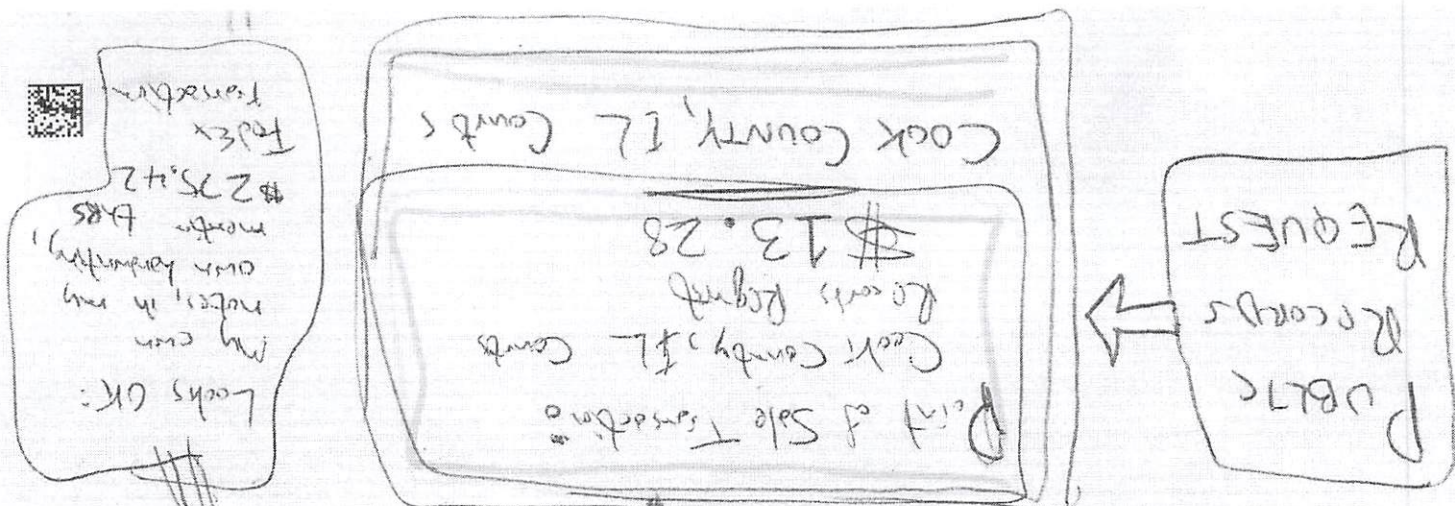 PUBLIC
RECORDS
REQUEST
Point of Sale Transaction:
Cook County, IL Courts
Records Request
$13.28
COOK COUNTY, IL Courts
Looks OK:
My own
notes, in my
own handwriting,
mention this
$275.42
FedEx
transaction